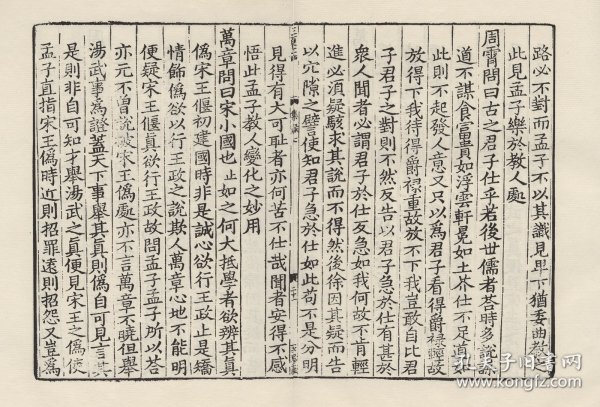 路必不對而孟子不以其識見卑下猶委曲教
此見孟子樂於教人處
周霄問曰古之君子仕乎若後世儒者荅時多說謀
道不謀食富貴如浮雲軒冕如土芥仕不足道
此則不起發人意又只以為君子看得爵祿輕故
放得下我待得爵祿重故放不下我豈敢自比君
子君子之對則不然反告以君子急於仕有甚於
衆人聞者必謂君子於仕反急如我何故不肯輕
進必須疑駭求其說而不得然後徐因其疑而告
以穴隙之譬使知君子急於仕如此苟不是分明
見得有大可耻者亦何苦不仕哉聞者安得不感
悟此孟子教人變化之妙用
萬章問曰宋小國也止如之何大抵學者欲辨其真
僞宋王偃初建國時非是誠心欲行王政止是矯
情飾僞欲以行王政之說欺人萬章心地不能明
便疑宋王偃真欲行王政故問孟子孟子所以荅
亦元不曾說破宋王僞處亦不言萬章不曉但舉
湯武事為證蓋天下事舉其真則僞自可見言其
是則非自可知才舉湯武之真便見宋王之僞使
孟子直指宋王僞時近則招罪遠則招怨又豈為
孔夫子旧书网
www.kongfz.com